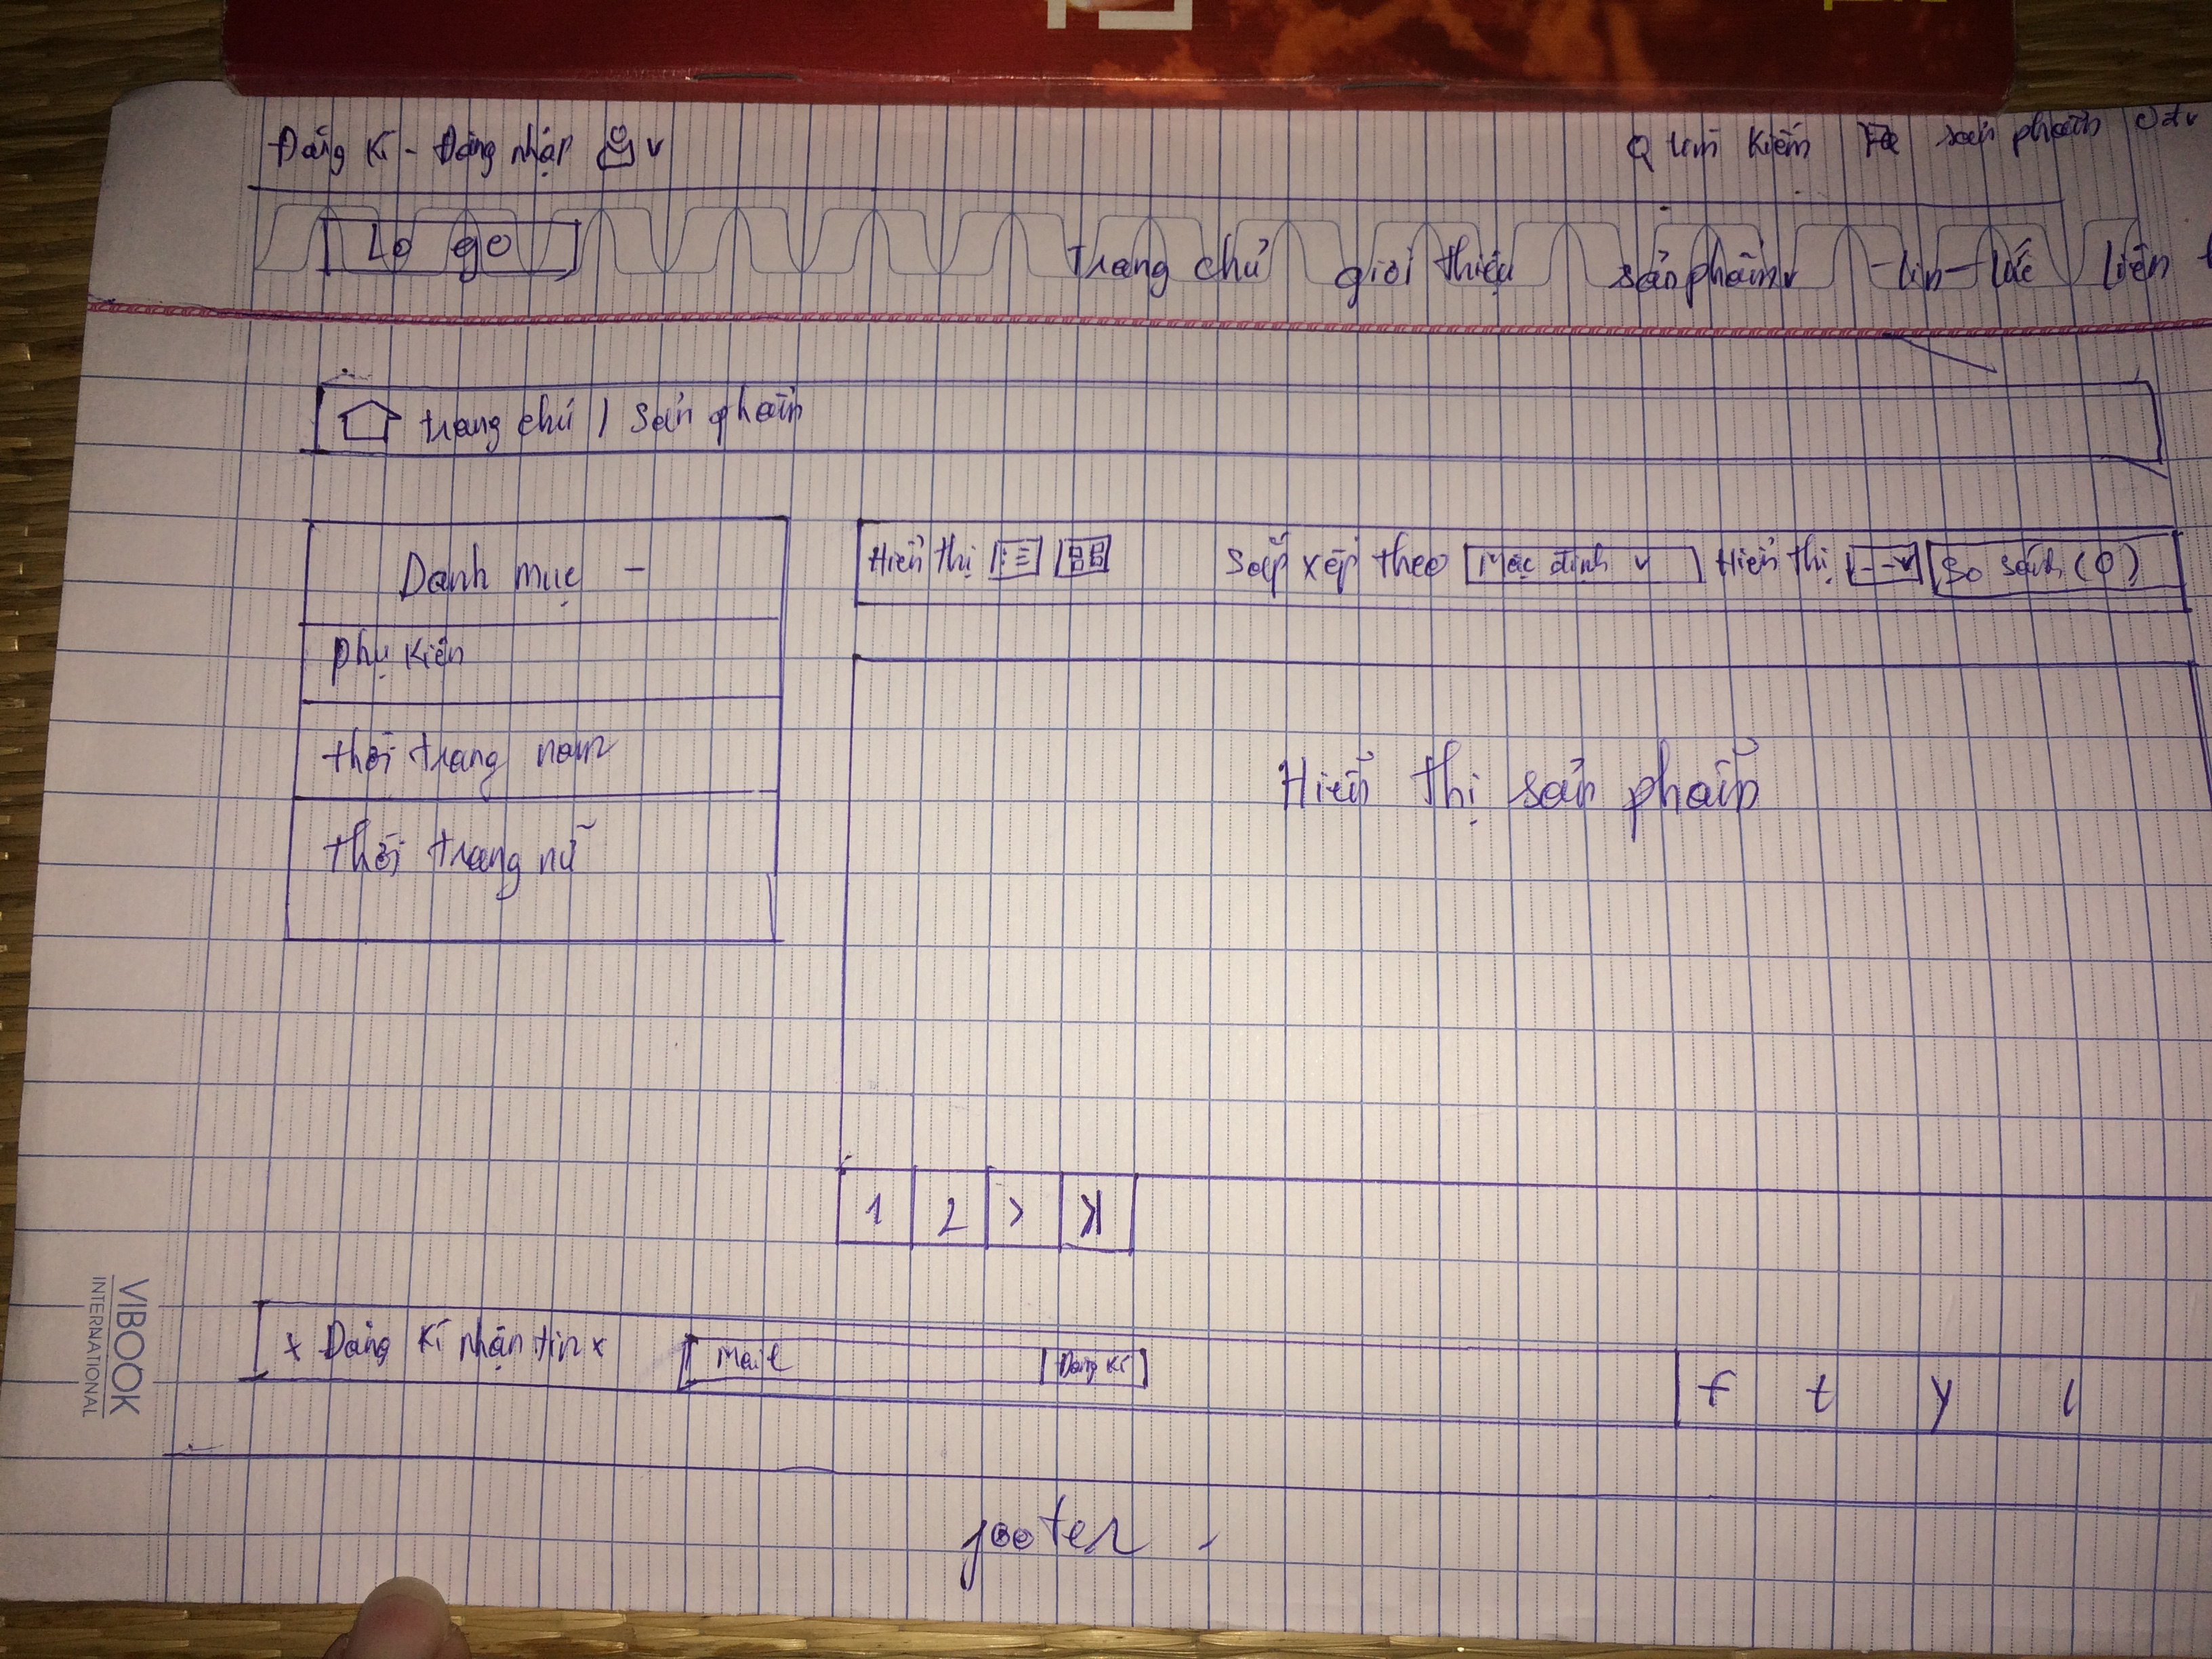 Đăng kí - Đăng nhập v
Q tìm kiếm sản phẩm
Lo go
trang chủ giới thiệu sản phẩm v tin tức liên
trang chủ / sản phẩm
Danh mục -
phụ kiện
thời trang nam
thời trang nữ
Hiển thị Sắp xếp theo Mặc định v Hiển thị --v So sánh (0)
Hiển thị sản phẩm
1 2 > >|
x Đăng kí nhận tin x mail Đăng kí f t y i
footer
VIBOOK
INTERNATIONAL